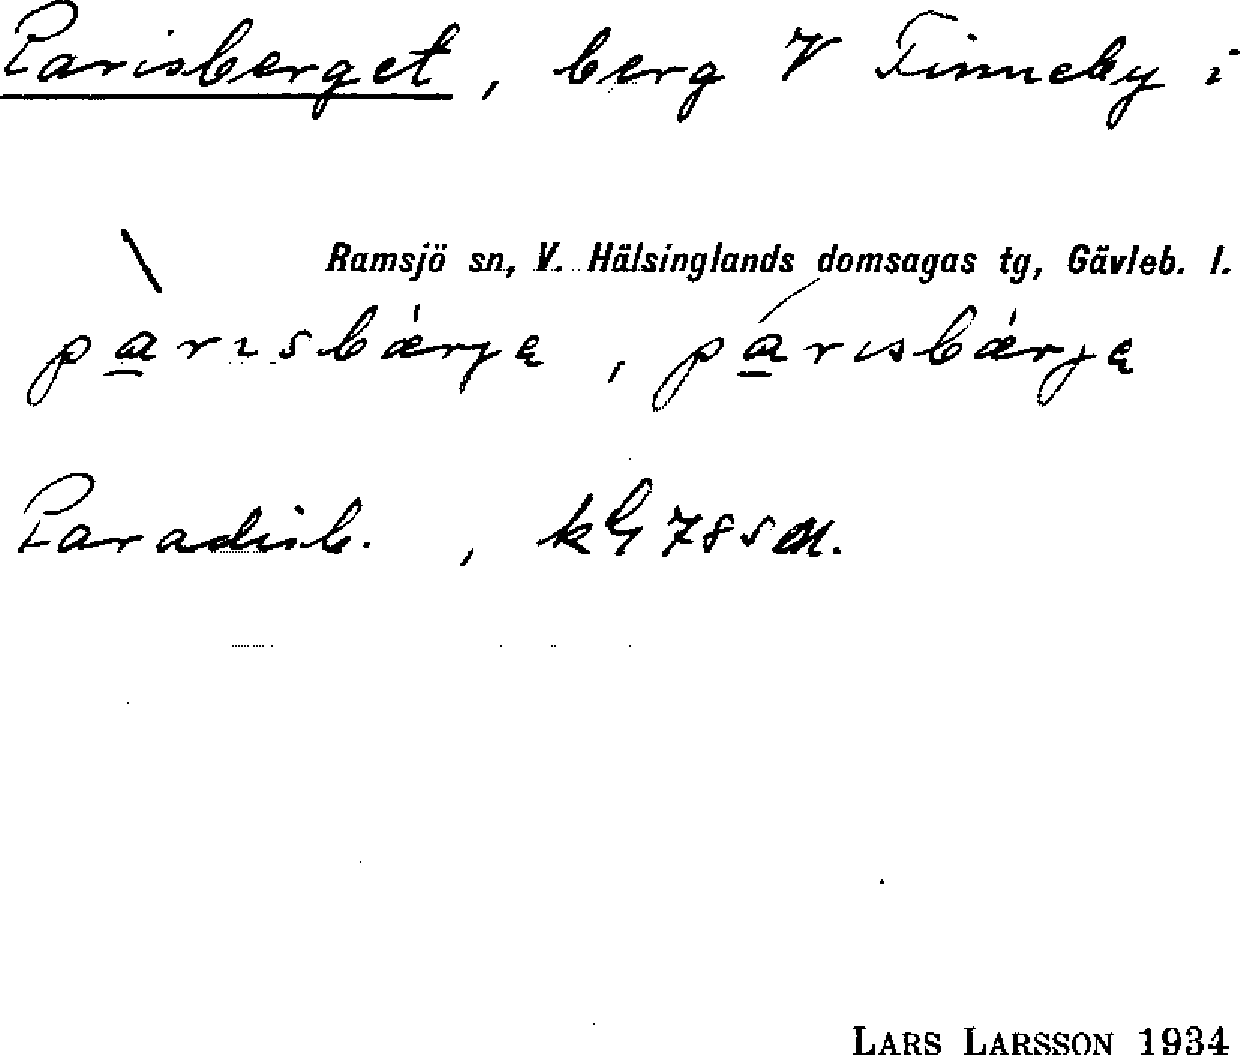 Parisberget, berg V Finneby i
Ramsjö sn, V. Hälsinglands domsagas tg, Gävleb. l.
pàrɪsbárję, párɪsbárję
Paradisb. , kG 785
LARS LARSSON 1934